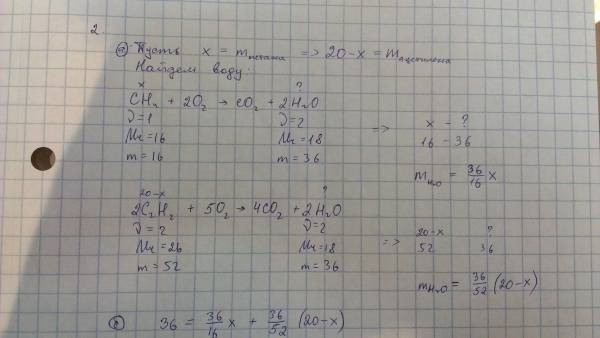 2.
а) Пусть x = mметана => 20-x = mацетилена
Найдем воду:
x ?
CH₄ + 2O₂ → CO₂ + 2H₂O
ν=1 ν=2
Mr=16 Mr=18
m=16 m=36
=> x - ?
16 - 36
mH₂O = 36/16 x
20-x ?
2C₂H₂ + 5O₂ → 4CO₂ + 2H₂O
ν=2 ν=2
Mr=26 Mr=18
m=52 m=36
=> 20-x ?
52 36
mH₂O = 36/52 (20-x)
б) 36 = 36/16 x + 36/52 (20-x)